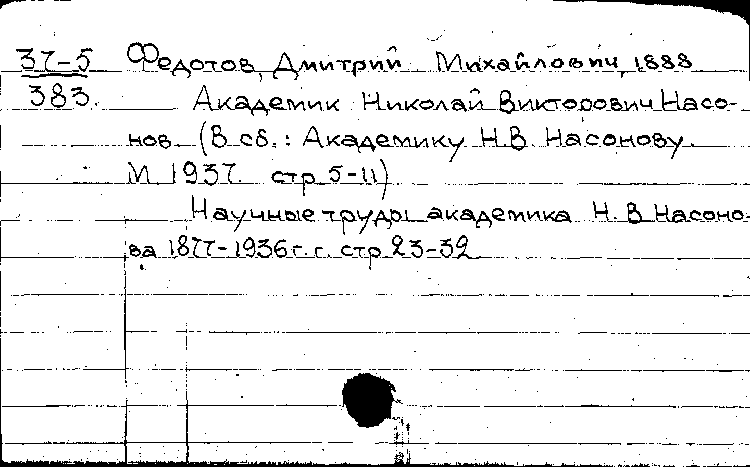 37-5 Федотов, Дмитрий Михайлович, 1888
383. Академик Николай Викторович Насо-
нов (В сб.: Академику Н.В. Насонову.
М. 1937. стр 5-11)
Научные труды академика Н. В Насоно-
ва 1877-1936 г.г. стр 23-32